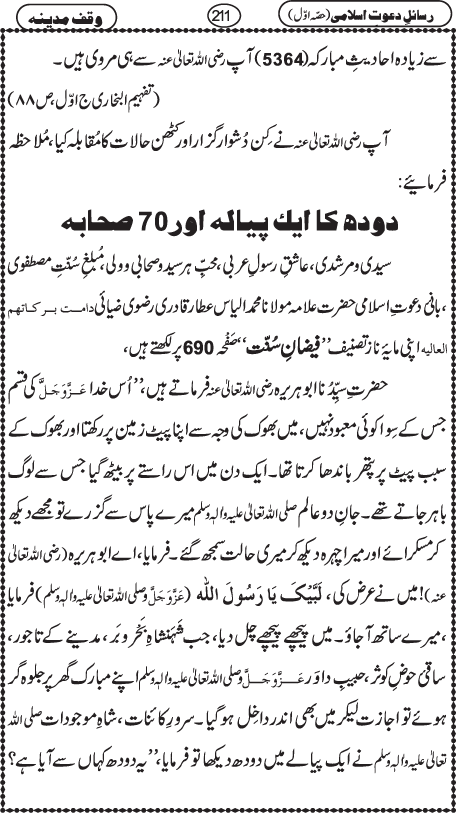 رسائلِ دعوتِ اسلامی (حصّہ اوّل) 211 وقفِ مدینہ
سے زیادہ احادیثِ مبارکہ (5364) آپ رضی اللہ تعالیٰ عنہ سے ہی مروی ہیں۔
(تفہیم البخاری ج اوّل، ص ۸۸)
آپ رضی اللہ تعالیٰ عنہ نے کِن دُشوار گزار اور کٹھن حالات کا مُقابلہ کیا، مُلاحظہ
فرمائیے:
دودھ کا ایک پیالہ اور 70 صحابہ
سیدی و مرشدی، عاشقِ رسولِ عربی، محبِّ ہر سید و صحابی و ولی، مُبلغِ سنّتِ مصطفوی
، بانیٔ دعوتِ اسلامی حضرت علامہ مولانا محمد الیاس عطار قادری رضوی ضیائی دامت برکاتہم
العالیہ اپنی مایۂ ناز تصنیف ’’فیضانِ سنّت‘‘ صَفْحَہ 690 پر لکھتے ہیں،
حضرتِ سیِّدُنا ابوہریرہ رضی اللہ تعالیٰ عنہ فرماتے ہیں، ’’اُس خدا عَزَّوَجَلَّ کی قسم
جس کے سِوا کوئی معبود نہیں، میں بھوک کی وجہ سے اپنا پیٹ زمین پر رکھتا اور بھوک کے
سبب پیٹ پر پتھر باندھا کرتا تھا۔ ایک دن میں اس راستے پر بیٹھ گیا جس سے لوگ
باہر جاتے تھے۔ جانِ دو عالم صلی اللہ تعالیٰ علیہ والہٖ وسلم میرے پاس سے گزرے تو مجھے دیکھ
کر مسکرائے اور میرا چہرہ دیکھ کر میری حالت سمجھ گئے۔ فرمایا، اے ابوہریرہ (رضی اللہ تعالیٰ
عنہ)! میں نے عرض کی، لَبَّیْکَ یَا رَسُولَ اللہ (عَزَّوَجَلَّ و صلی اللہ تعالیٰ علیہ والہٖ وسلم) فرمایا
، میرے ساتھ آجاؤ۔ میں پیچھے پیچھے چل دیا، جب شَہَنشاہِ بَحْر و بَر، مدینے کے تاجور،
ساقیٔ حوضِ کوثر، حبیبِ داوَر عَزَّوَجَلَّ و صلی اللہ تعالیٰ علیہ والہٖ وسلم اپنے مبارک گھر پر جلوہ گر
ہوئے تو اجازت لیکر میں بھی اندر داخل ہوگیا۔ سرورِ کائنات، شاہِ موجودات صلی اللہ
تعالیٰ علیہ والہٖ وسلم نے ایک پیالے میں دودھ دیکھا تو فرمایا، ’’یہ دودھ کہاں سے آیا ہے؟